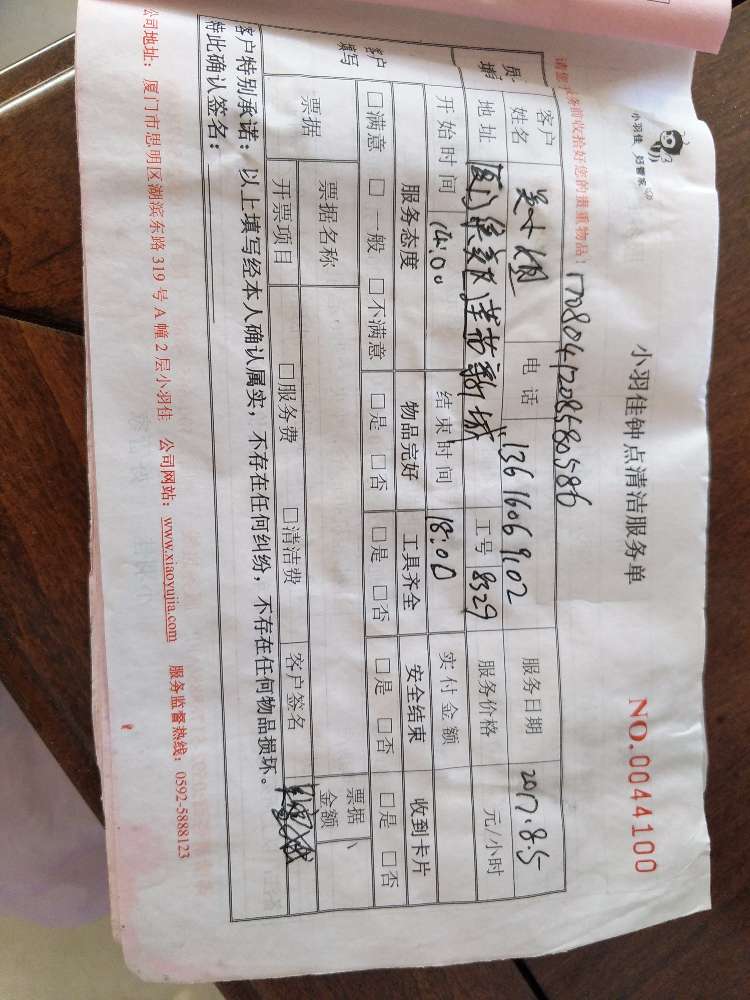 小羽佳 好管家
小羽佳钟点清洁服务单
NO.0044100
请您服务前收拾好您的贵重物品！
1708041208580586
客户姓名 吴小姐 电话 13616069102 服务日期 2017.8.5
地址 工号 8329 服务价格 元/小时
开始时间 14:00 结束时间 18:00 实付金额
客户填写 服务态度 物品完好 工具齐全 安全结束 收到卡片
□满意 □一般 □不满意 □是 □否 □是 □否 □是 □否 □是 □否
票据 票据名称 票据金额
开票项目 □服务费 □清洁费 客户签名
客户特别承诺：以上填写经本人确认属实，不存在任何纠纷，不存在任何物品损坏。
特此确认签名：
公司地址：厦门市思明区湖滨东路319号A幢2层小羽佳 公司网站：www.xiaoyujia.com 服务监督热线：0592-5888123